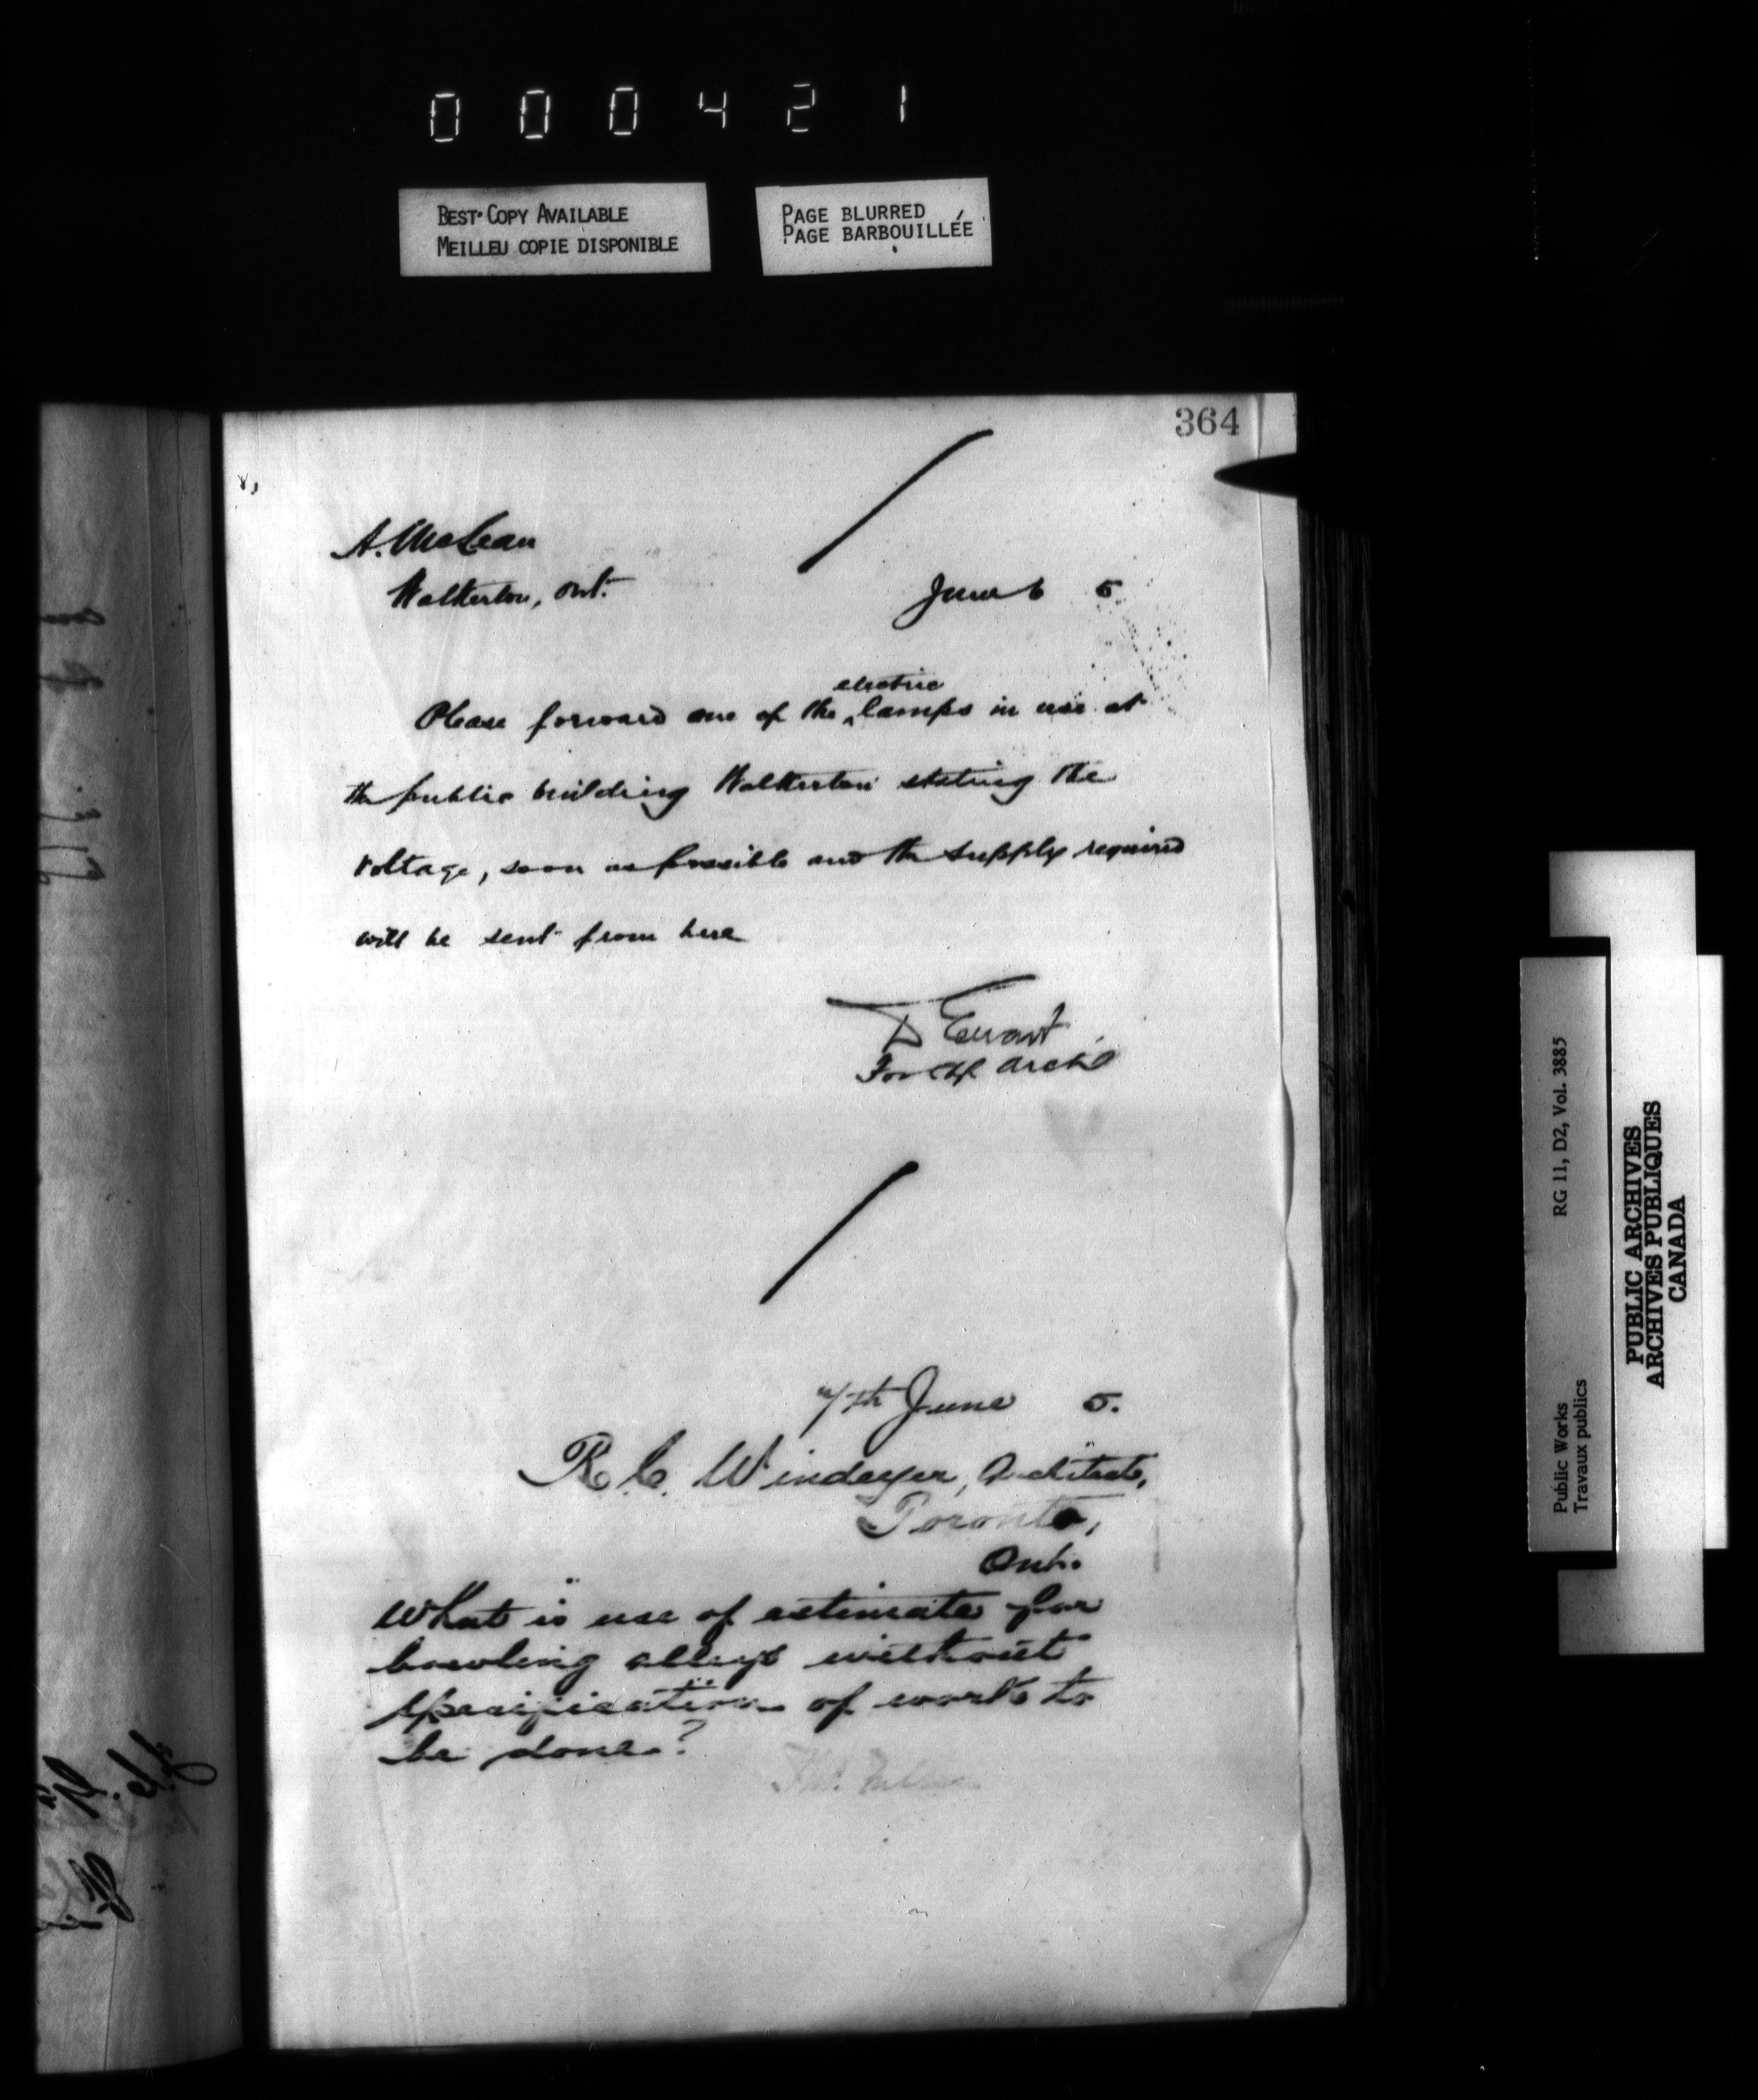 000421
BEST COPY AVAILABLE
MEILLEU COPIE DISPONIBLE
PAGE BLURRED
PAGE BARBOUILLÉE
364
A. McLean
Walkerton, Ont.
June 6 5
electric
Please forward one of the ^ lamps in use at
the public building Walkerton stating the
voltage, soon as possible and the supply required
will be sent from here
D Ewart
For Ch Archt
7th June 5.
R. C. Windeyer, Architect,
Toronto,
Ont.
What is use of estimate for
bowling alleys without
specification of work to
be done?
Thos. Fuller
Public Works
Travaux publics
RG 11, D2, Vol. 3885
PUBLIC ARCHIVES
ARCHIVES PUBLIQUES
CANADA